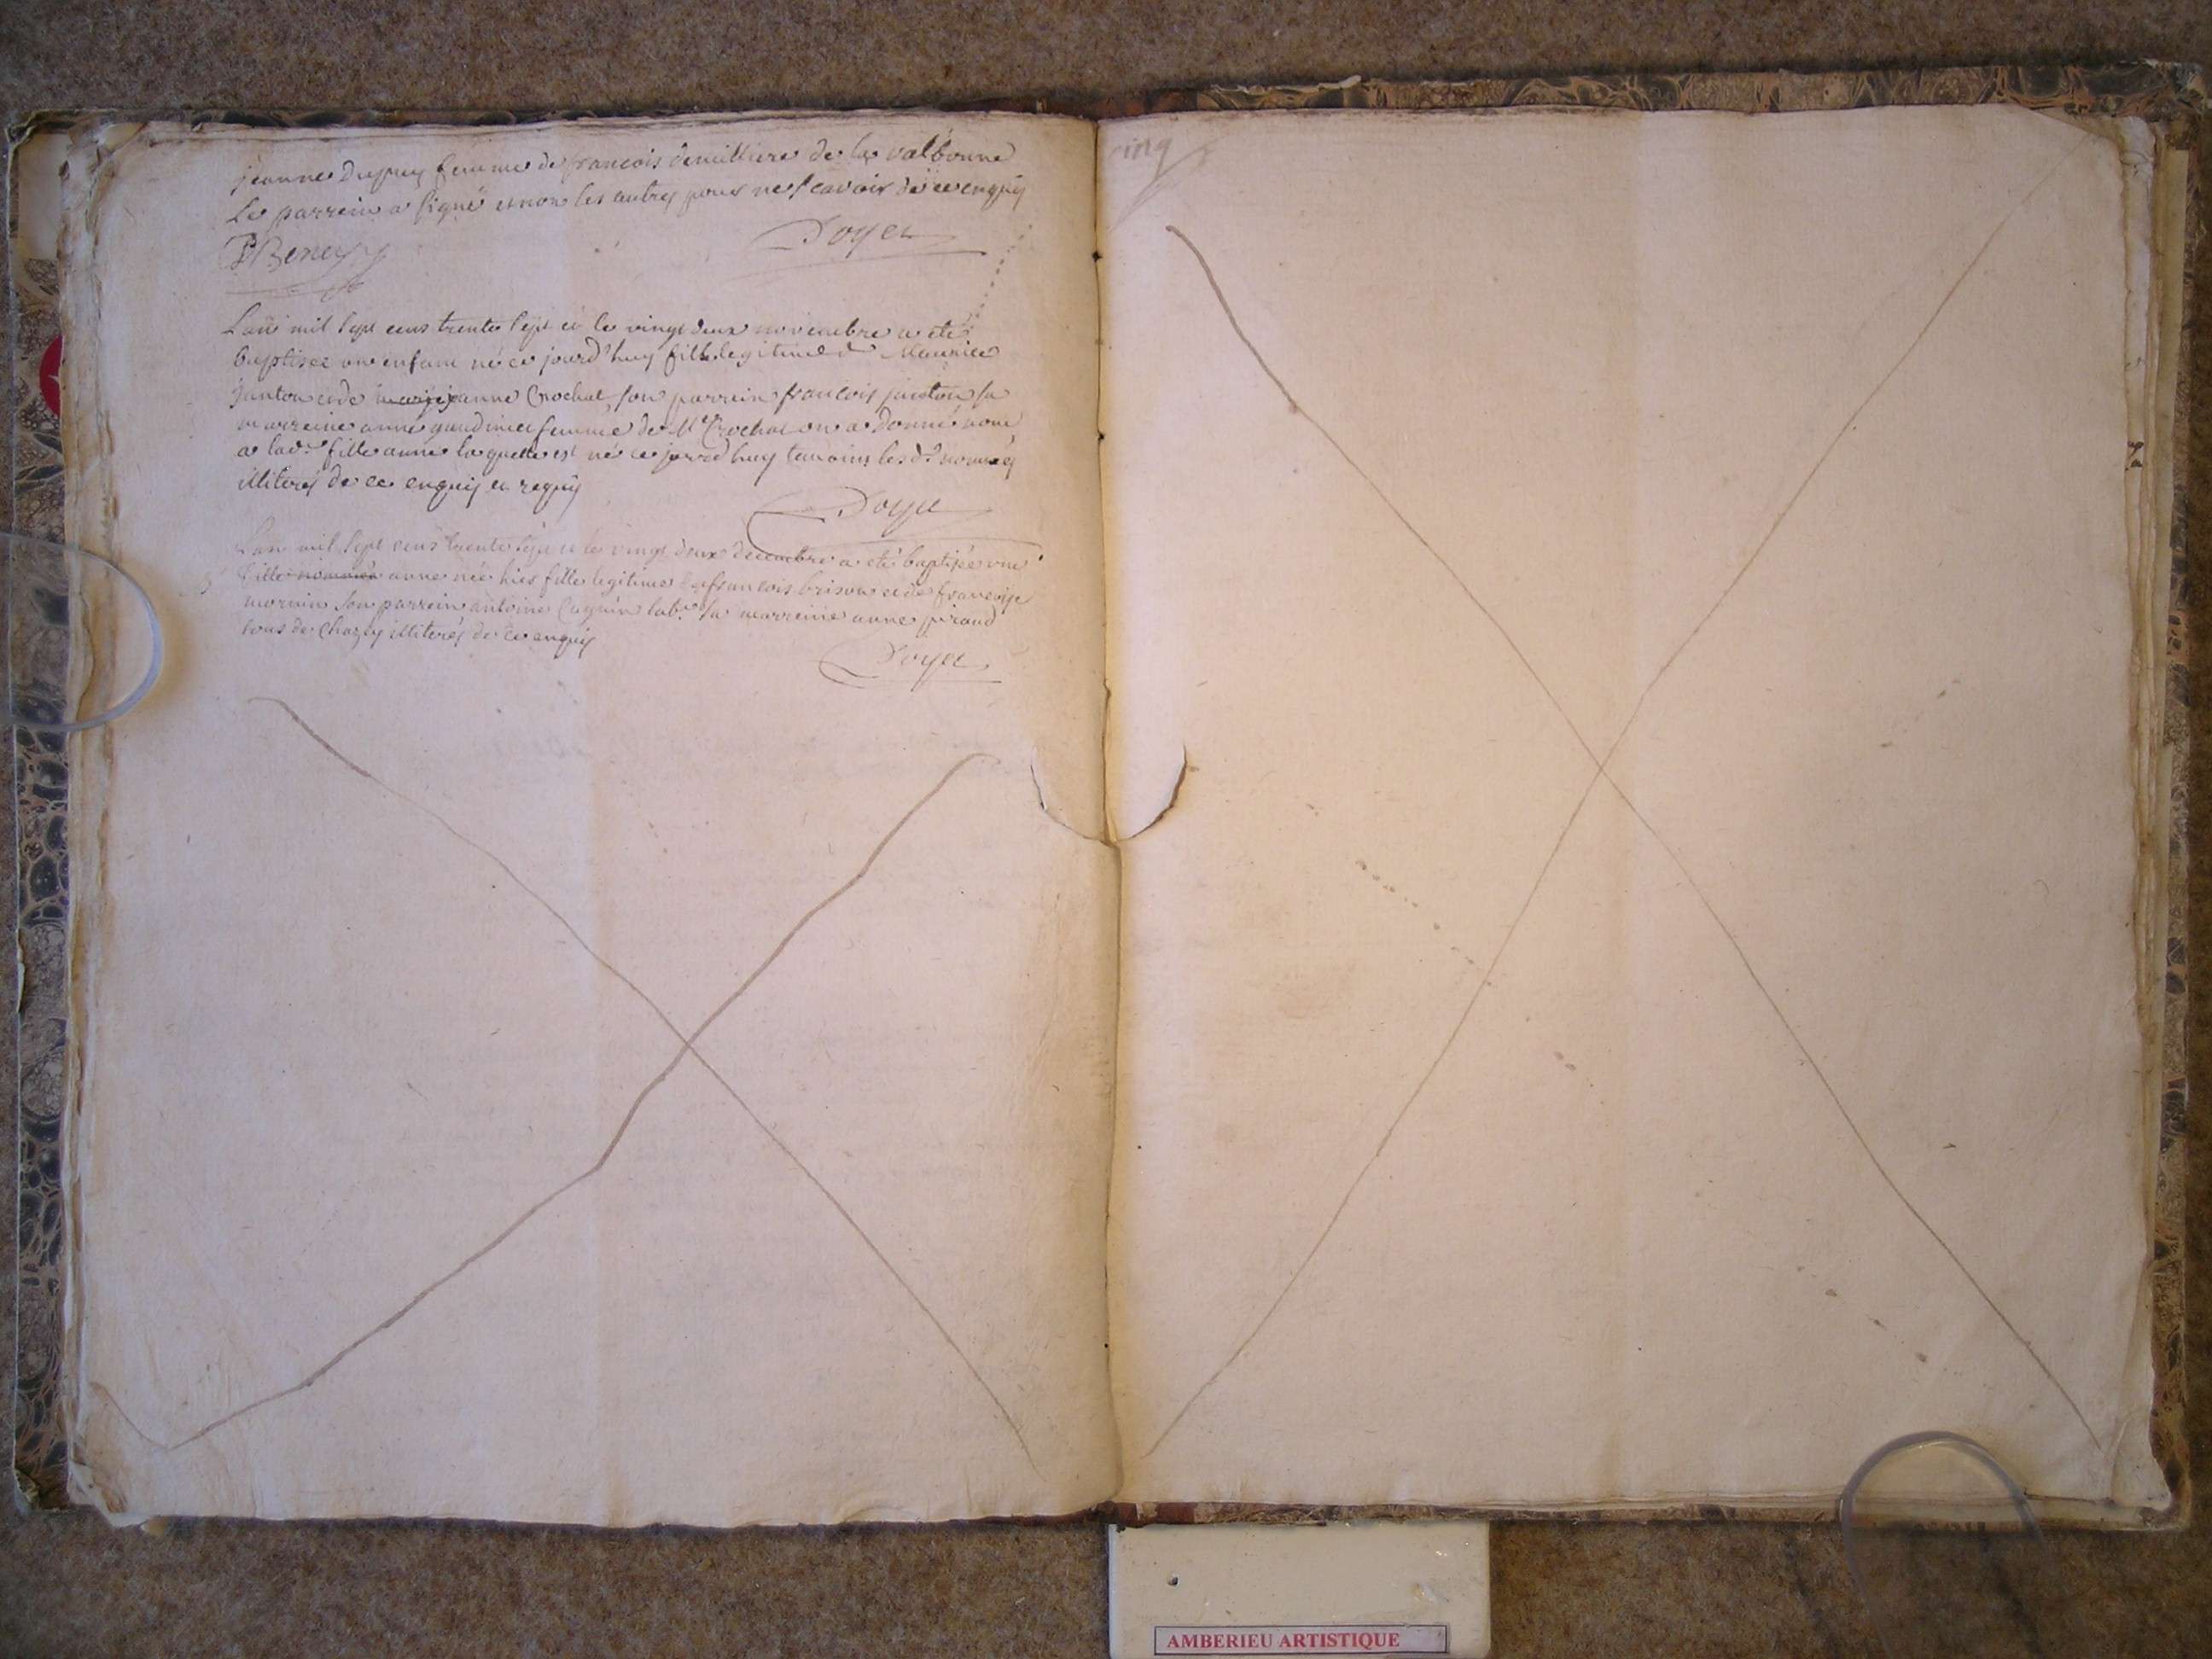 jeanne Dupuy femme de francois demilliere de la valbonne
Le parrein a signé et non les autres pour ne scavoir de ce enquis
PBeney
Doyer
L'an mil sept cens trente sept et le vingt deux novembre a eté
baptisee une enfant née ce jourd'huy fille legitime de Maurice
janton et de marie jeanne Crochat son parrein francois janton sa
marreine anne femme de Mr Crochat on a donné nom
a lad. fille anne laquelle est née ce jourd'huy temoins lesd. nomées
illiterés de ce enquis et requis
Doyer
L'an mil sept cens trente sept et le vingt deux decembre a eté baptisée une
fille nommée anne née hier fille legitime de francois brison et de francoise
mornin son parrein antoine lab. sa marreine anne
tous de Chazey illiterés de ce enquis
Doyer
AMBERIEU ARTISTIQUE